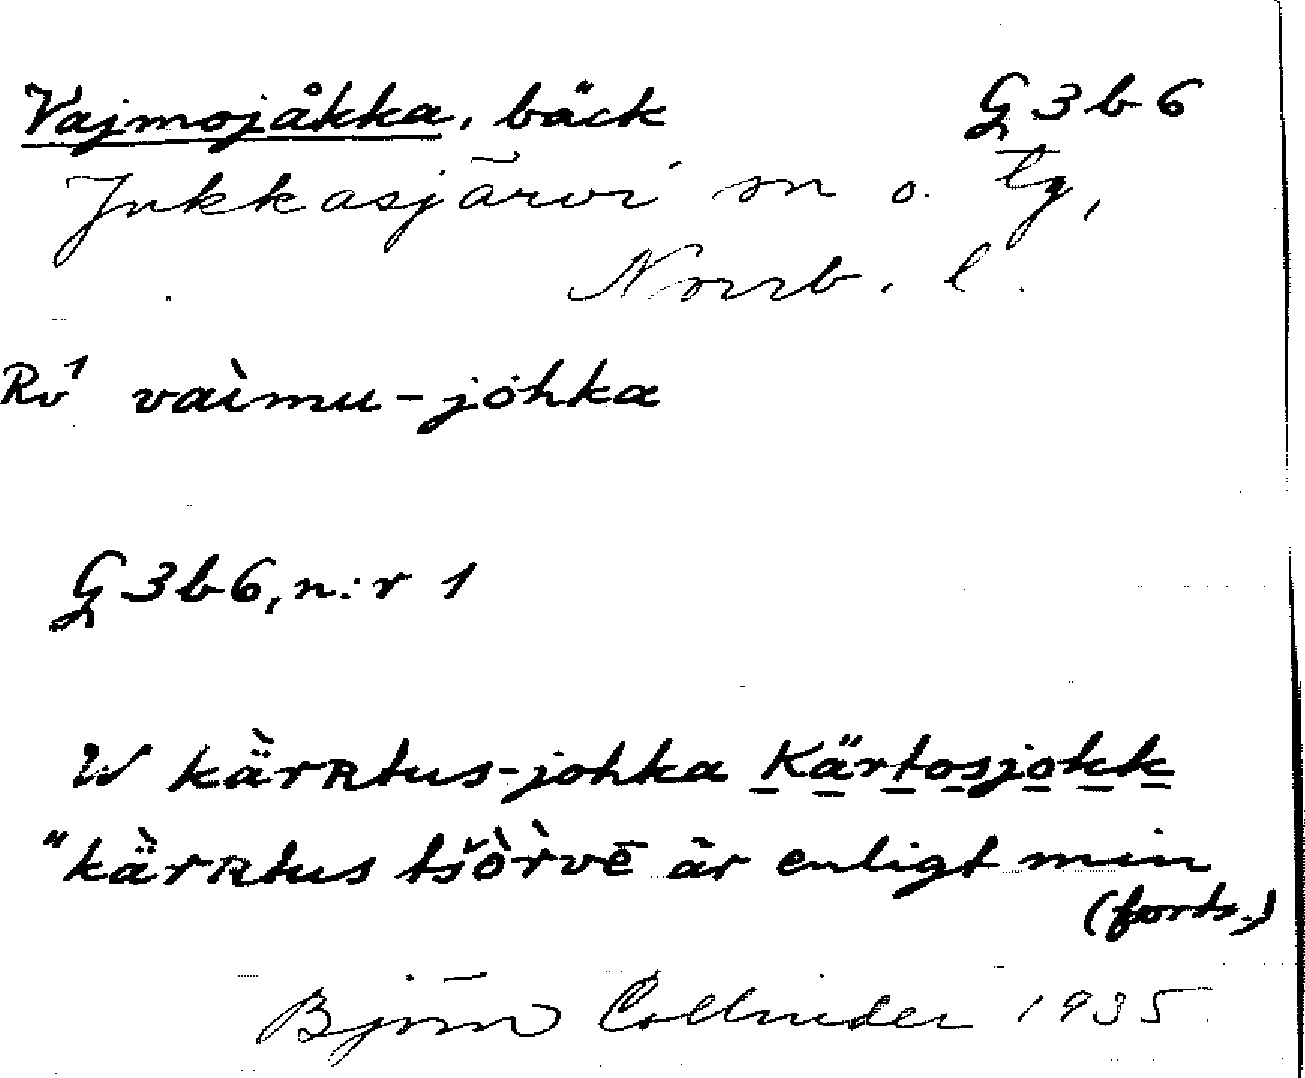 Vajmojåkka, bäck G 3 b 6
Jukkasjärvi sn o. tg,
Norrb. l.
Rv 1 vaìmu-johka
G 3 b 6, n:r 1
W kä̀rRtus-johka Kärtosjokk
"kä̀rRtus tšòr̀vē är enligt min
(forts.)
Björn Collinder 1935